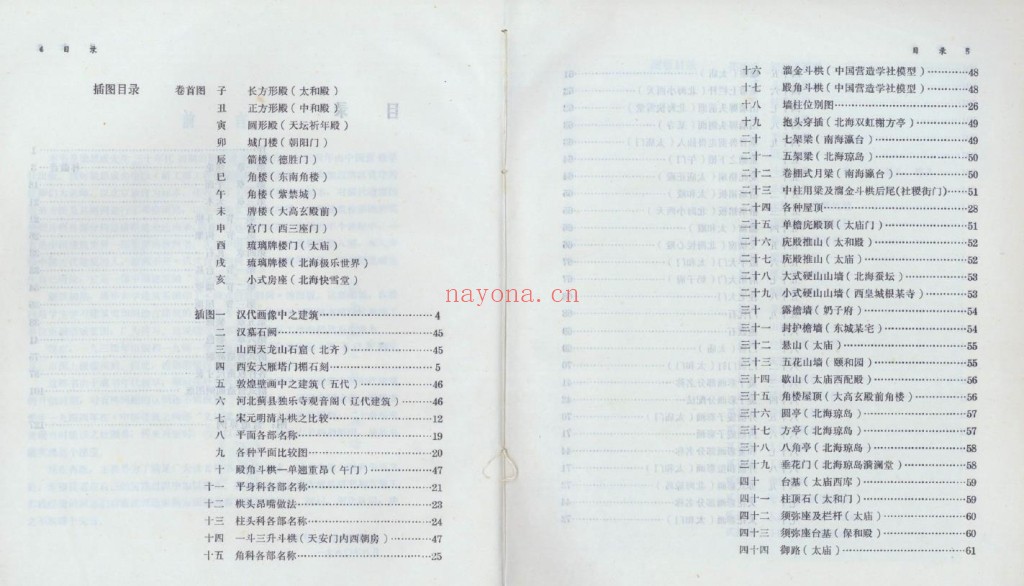 4 目 录
插图目录 卷首图 子 长方形殿(太和殿)
丑 正方形殿(中和殿)
寅 圆形殿(天坛祈年殿)
卯 城门楼(朝阳门)
辰 箭楼(德胜门)
巳 角楼(东南角楼)
午 角楼(紫禁城)
未 牌楼(大高玄殿前)
申 宫门(西三座门)
酉 琉璃牌楼门(太庙)
戌 琉璃牌楼(北海极乐世界)
亥 小式房座(北海快雪堂)
插图一 汉代画像中之建筑……4
二 汉墓石阙……45
三 山西天龙山石窟(北齐)……45
四 西安大雁塔门楣石刻……5
五 敦煌壁画中之建筑(五代)……46
六 河北蓟县独乐寺观音阁(辽代建筑)……46
七 宋元明清斗栱之比较……12
八 平面各部名称……19
九 各种平面比较图……20
十 殿角斗栱—单翘重昂(午门)……47
十一 平身科各部名称……21
十二 栱头昂嘴做法……23
十三 柱头科各部名称……24
十四 一斗三升斗栱(天安门内西朝房)……47
十五 角科各部名称……25
目 录 5
十六 溜金斗栱(中国营造学社模型)……48
十七 殿角斗栱(中国营造学社模型)……48
十八 墙柱位别图……26
十九 抱头穿插(北海双虹榭方亭)……49
二十 七架梁(南海瀛台)……49
二十一 五架梁(北海琼岛)……50
二十二 卷棚式月梁(南海瀛台)……50
二十三 中柱用梁及溜金斗栱后尾(社稷街门)……51
二十四 各种屋顶……28
二十五 单檐庑殿顶(太庙门)……51
二十六 庑殿推山(太和殿)……52
二十七 庑殿推山(太庙)……52
二十八 大式硬山山墙(北海蚕坛)……53
二十九 小式硬山山墙(西皇城根某寺)……53
三十 露檐墙(奶子府)……54
三十一 封护檐墙(东城某宅)……54
三十二 悬山(太庙)……55
三十三 五花山墙(颐和园)……55
三十四 歇山(太庙西配殿)……56
三十五 角楼屋顶(大高玄殿前角楼)……56
三十六 圆亭(北海琼岛)……57
三十七 方亭(北海琼岛)……57
三十八 八角亭(北海琼岛)……58
三十九 垂花门(北海琼岛漪澜堂)……58
四十 台基(太庙西库)……59
四十一 柱顶石(太和门)……59
四十二 须弥座及栏杆(太庙)……60
四十三 须弥座台基(保和殿)……60
四十四 御路(太庙)……61
nayona.cn